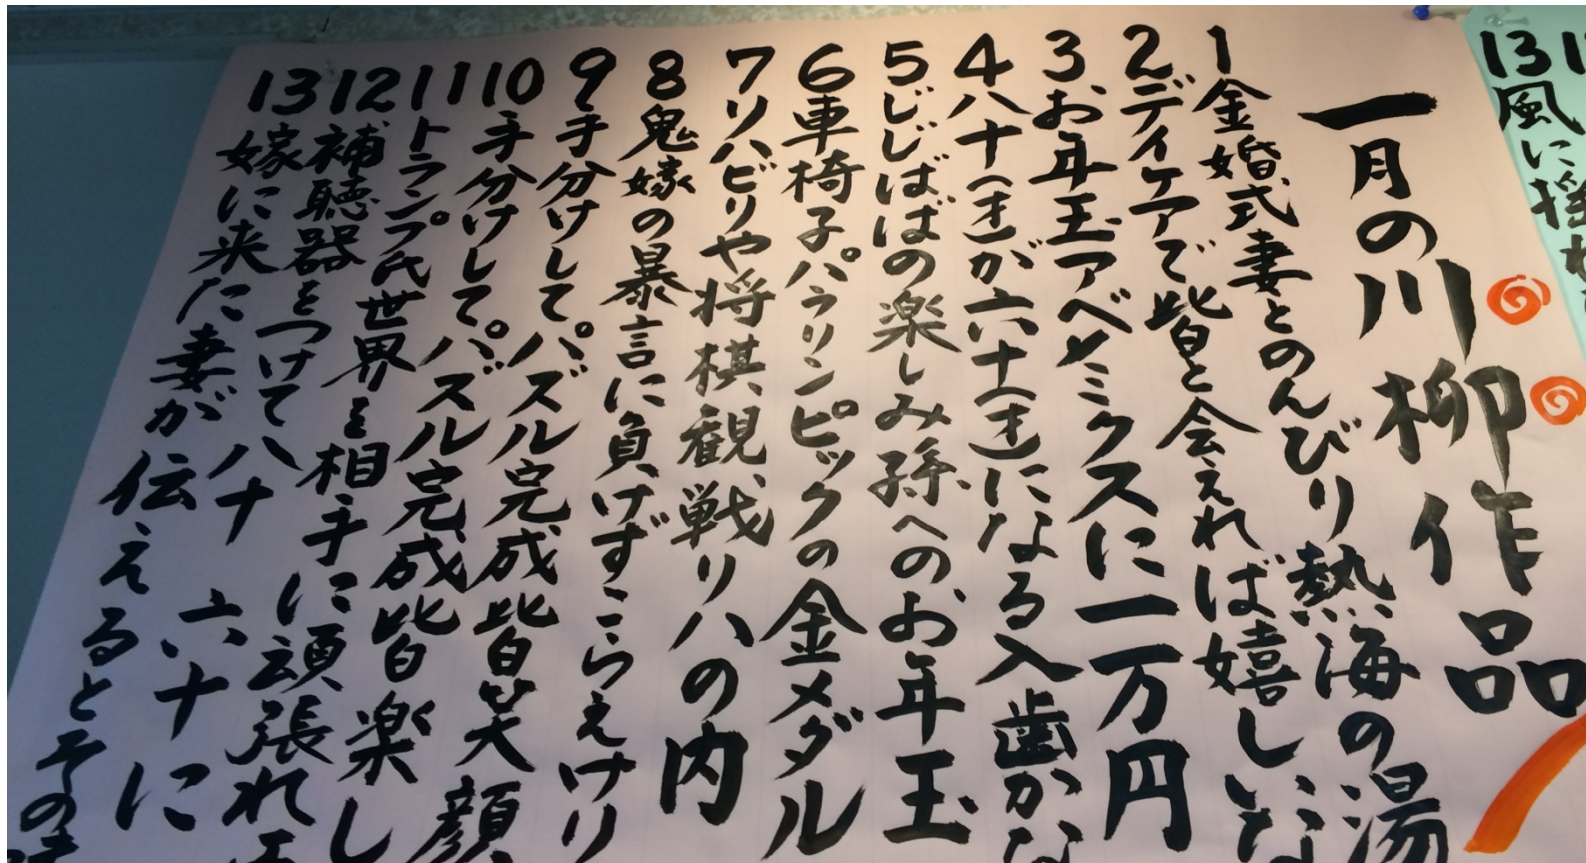 13風に揺れ
一月の川柳作品
1金婚式妻とのんびり熱海の湯
2デイケアで皆と会えれば嬉しいな
3お年玉アベノミクスに一万円
4八十(才)が六十(才)になる入歯かな
5じじばばの楽しみ孫へのお年玉
6車椅子パラリンピックの金メダル
7リハビリや将棋観戦リハの内
8鬼嫁の暴言に負けずこらえけり
9手分けしてパズル完成皆笑顔
10手分けしてパズル完成皆楽し
11トランプ氏世界を相手に頑張れ
12補聴器をつけて八十 六十に
13嫁に来た妻が伝えるとその